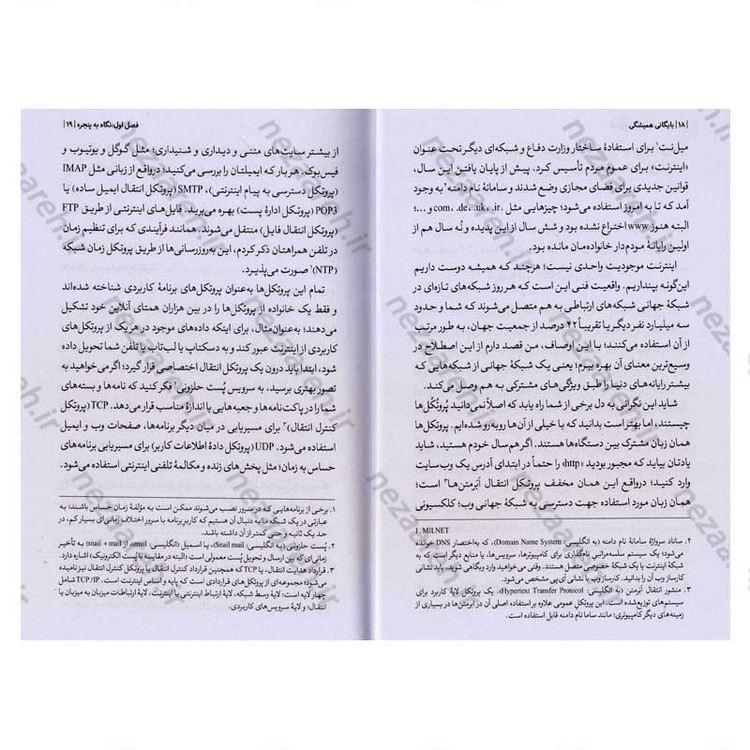 ۱۸ | بایگانی همیشگی
میل‌نت۱ برای استفادهٔ ساختار وزارت دفاع و شبکه‌ای دیگر تحت عنوان
«اینترنت» برای عموم مردم تأسیس کرد. پیش از پایان یافتن این سال،
قوانین جدیدی برای فضای مجازی وضع شدند و سامانهٔ نام دامنه۲ به وجود
آمد که تا به امروز استفاده می‌شود؛ چیزهایی مثل .com، .de، .uk، .ir و...؛
البته هنوز www اختراع نشده بود و شش سال از این پدیده و نُه سال هم از
اولین رایانهٔ مودم‌دار خانواده‌مان مانده بود.
اینترنت موجودیت واحدی نیست؛ هرچند که همیشه دوست داریم
این‌گونه بپنداریم. واقعیت فنی این است که هر روز شبکه‌های تازه‌ای در
شبکهٔ جهانی شبکه‌های ارتباطی به هم متصل می‌شوند که شما و حدود
سه میلیارد نفر دیگر یا تقریباً ۴۲ درصد از جمعیت جهان، به طور مرتب
از آن استفاده می‌کنند؛ با این اوصاف، من قصد دارم از این اصطلاح در
وسیع‌ترین معنای آن بهره ببرم؛ یعنی یک شبکهٔ جهانی از شبکه‌هایی که
بیشتر رایانه‌های دنیا را طبق ویژگی‌های مشترکی به هم وصل می‌کند.
شاید این نگرانی به دل برخی از شما راه یابد که اصلاً نمی‌دانید پروتُکُل‌ها
چیستند، اما بهتر است بدانید که با خیلی از آن‌ها روبه‌رو شده‌ایم. پروتکل‌ها
همان زبان مشترک بین دستگاه‌ها هستند. اگر هم‌سال خودم هستید، شاید
یادتان بیاید که مجبور بودید «http» را حتماً در ابتدای آدرس یک وب‌سایت
وارد کنید؛ درواقع این همان مخفف پروتکل انتقال آبَرمتن‌ها۳ است؛
همان زبان مورد استفاده جهت دسترسی به شبکهٔ جهانی وب؛ کلکسیونی
1. MILNET
۲. ساناد سرواژهٔ سامانهٔ نام دامنه (به انگلیسی: Domain Name System)، که به‌اختصار DNS خوانده
می‌شود؛ یک سیستم سلسله‌مراتبی نام‌گذاری برای کامپیوترها، سرویس‌ها، یا منابع دیگر است که به
شبکهٔ اینترنت یا یک شبکهٔ خصوصی متصل هستند. وقتی می‌خواهید وارد وبگاهی شوید، باید نشانی
کارساز وب آن را بدانید. کارساز وب با نشانی آی‌پی مشخص می‌شود.
۳. منشور انتقال آبَرمتن (به انگلیسی: Hypertext Transfer Protocol)، یک پروتکل لایهٔ کاربرد برای
سیستم‌های توزیع‌شده است. این پروتکل عمومی علاوه بر استفاده اصلی آن در آبَرمتن‌ها در بسیاری از
زمینه‌های دیگر کامپیوتری؛ مانند ساما نام دامنه قابل استفاده است.
فصل اول: نگاه به پنجره | ۱۹
از بیشتر سایت‌های متنی و دیداری و شنیداری؛ مثل گوگل و یوتیوب و
فیس‌بوک. هر بار که ایمیلتان را بررسی می‌کنید؛ درواقع از زبانی مثل IMAP
(پروتکل دسترسی به پیام اینترنتی)، SMTP (پروتکل انتقال ایمیل ساده) یا
POP3 (پروتکل ادارهٔ پست) بهره می‌برید. فایل‌های اینترنتی از طریق FTP
(پروتکل انتقال فایل) منتقل می‌شوند. همانند فرآیندی که برای تنظیم زمان
در تلفن همراهتان ذکر کردم، این به‌روزرسانی‌ها از طریق پروتکل زمان شبکه
(NTP)۱ صورت می‌پذیرد.
تمام این پروتکل‌ها به‌عنوان پروتکل‌های برنامهٔ کاربردی شناخته شده‌اند
و فقط یک خانواده از پروتکل‌ها را در بین هزاران همتای آنلاین خود تشکیل
می‌دهند؛ به‌عنوان‌مثال، برای اینکه داده‌های موجود در هر یک از پروتکل‌های
کاربردی از اینترنت عبور کند و به دسکتاپ یا لپ‌تاپ یا تلفن شما تحویل داده
شود، ابتدا باید درون یک پروتکل انتقال اختصاصی قرار گیرد؛ اگر می‌خواهید به
تصور بهتری برسید، به سرویس پُست حلزونی۲ فکر کنید که نامه‌ها و بسته‌های
شما را در پاکت‌نامه‌ها و جعبه‌هایی با اندازهٔ مناسب قرار می‌دهد. TCP (پروتکل
کنترل انتقال)۳ برای مسیریابی در میان دیگر برنامه‌ها، صفحات وب و ایمیل
استفاده می‌شود. UDP (پروتکل دادهٔ اطلاعات کاربر) برای مسیریابی برنامه‌های
حساس به زمان؛ مثل پخش‌های زنده و مکالمهٔ تلفنی اینترنتی استفاده می‌شود.
۱. برخی از برنامه‌هایی که در سرور نصب می‌شوند ممکن است به مؤلفهٔ زمان حساس باشند؛ به
عبارتی در یک شبکه ما به دنبال آن هستیم که کاربر برنامه با سرور اختلاف زمانی بسیار کم، در
حد یک ثانیه و حتی کمتر از آن داشته باشد.
۲. پُست حلزونی (به انگلیسی: Snail mail)، یا اسمیل (انگلیسی: smail، از snail + mail) به تأخیر
زمانی‌ای که بین ارسال و تحویل پُست معمولی است (البته در مقایسه با پُست الکترونیک) اشاره دارد.
۳. قرارداد هدایت انتقال، یا TCP که همچنین قرارداد کنترل انتقال یا پروتکل کنترل انتقال نیز نامیده
می‌شود؛ مجموعه‌ای از پروتکل‌های قراردادی است که پایه و اساس اینترنت است. TCP/IP شامل
چهار لایه است؛ لایهٔ واسط شبکه، لایهٔ ارتباط اینترنتی یا اینترنت، لایهٔ ارتباطات میزبان به میزبان یا
انتقال؛ و لایهٔ سرویس‌های کاربردی.
nezaareh.ir